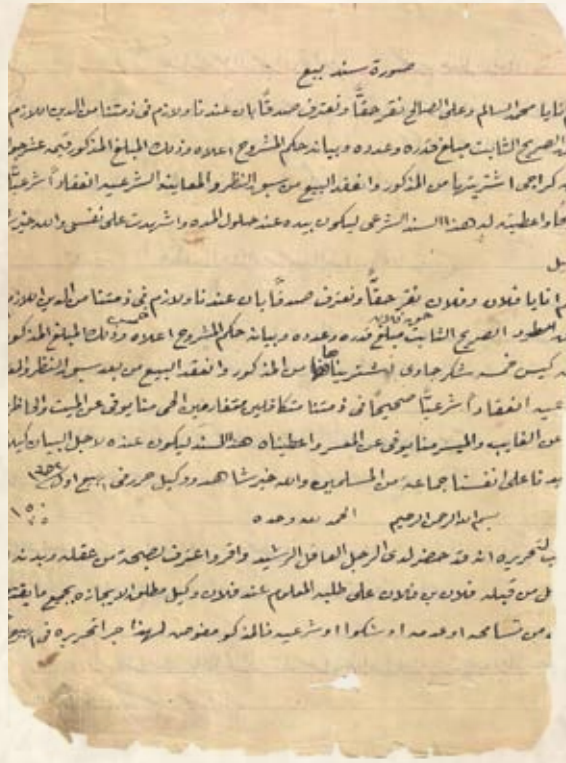 صورة سند بيع
انا يا محمد السالم وعلى الصالح نقر حقاً ونعترف صدقاً بان عندنا ولازم فى ذمتنا من الدين اللازم
الصريح الثابت مبلغ قدره وعدده وبيانه حكم المشروح اعلاه وذلك المبلغ المذكور قيمة عشر
كراجى اشتريتها من المذكور وانعقد البيع من سبق النظر والمعاينه الشرعيه انعقاداً شرعياً
واعطيته لهذا السند الشرعى ليكون بيده عند حلول المده واشهدت على نفسى والله خير
انا يا فلان وفلان نقر حقاً ونعترف صدقاً بان عندنا ولازم فى ذمتنا من الدين اللازم
الصريح الثابت مبلغ قدره وعدده وبيانه حكم المشروح اعلاه وذلك المبلغ المذكور
كيس خمسه شكر جاوى اشتريناها من المذكور وانعقد البيع من بعد سبق النظر
انعقاداً شرعياً صحيحاً فى ذمتنا متكافلين متضامنين الحى منا يوفى عن الميت والحاظر
عن الغايب والميسر منا يوفى عن المعسر واعطيناه هذا السند ليكون عنده لاجل البيان
على انفسنا جماعة من المسلمين والله خير شاهد ووكيل حرر فى ربيع اول
بسم الله الرحمن الرحيم الحمد لله وحده
تحريره انه قد حضر لدى الرجل العاقل الرشيد واقر واعترف بصحة من عقله وبدنه
من قبله فلان بن فلان على طلبه المعلوم عند فلان وكيل مطلق الاجازه بجميع ما
من تسامحه او عدمه او شكوا او شرعيه فالمذكور مفوض لهذا جرا تحريره فى